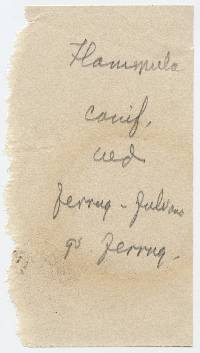 Flammula
conif.
ued
ferrug - fulvous
gs ferrug.